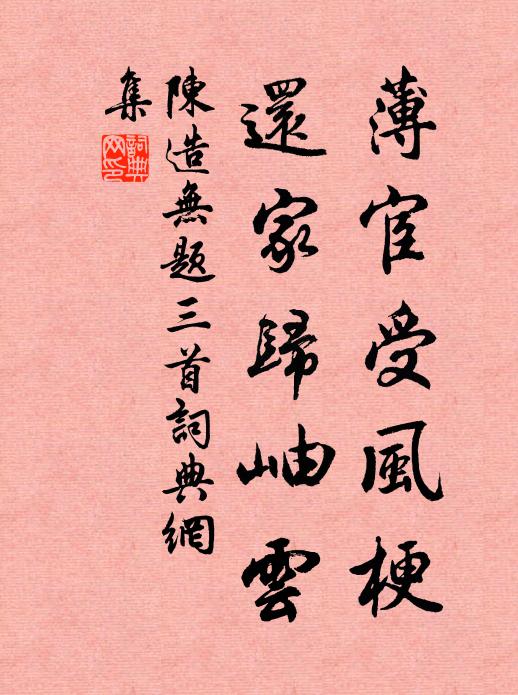 薄宦受風梗
還家歸岫雲
陳造無題三首詞典網
集
詞典網印